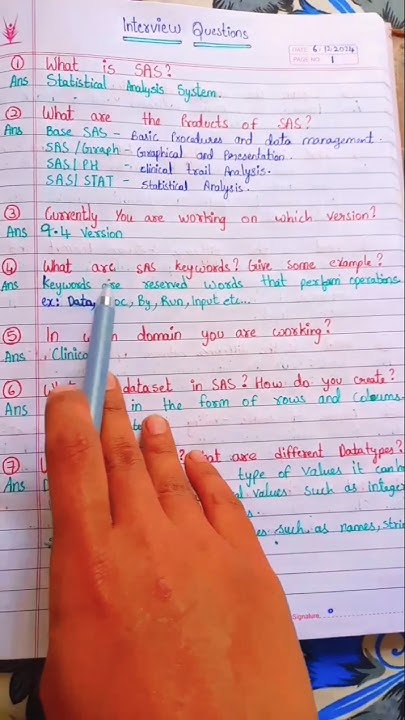 Interview Questions
DATE: 6.12.2024
PAGE NO.: 1
① What is SAS?
Ans Statistical Analysis System.
② What are the Products of SAS?
Ans Base SAS – Basic Procedures and data management.
SAS/Graph – Graphical and Presentation.
SAS/PH – clinical trail Analysis.
SAS/STAT – Statistical Analysis.
③ Currently You are working on which version?
Ans 9.4 Version
④ What are SAS keywords? Give some example?
Ans Keywords are reserved words that perform operations.
ex: Data, By, Run, Input etc...
⑤ In domain you are working?
Ans
⑥ dataset in SAS? How do you create?
Ans in the form of rows and coloums.
⑦ ? are different Datatypes?
Ans type of values it can
values such as integer
such as names,
Signature